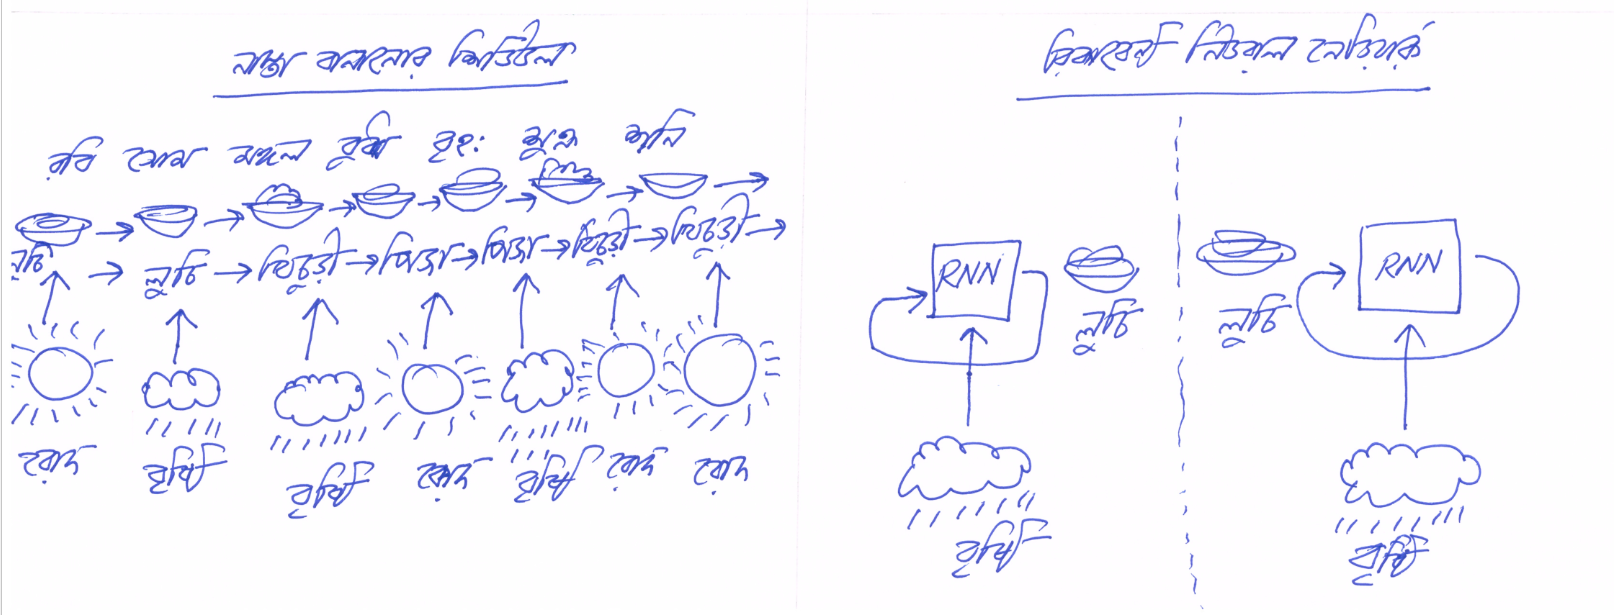 নাস্তা বানানোর শিডিউল
রবি সোম মঙ্গল বুধ বৃহ: শুক্র শনি
লুচি লুচি খিচুড়ী পিজা পিজা খিচুড়ী খিচুড়ী
রোদ বৃষ্টি বৃষ্টি রোদ বৃষ্টি রোদ রোদ
রিকারেন্ট নিউরাল নেটওয়ার্ক
RNN লুচি
বৃষ্টি
লুচি RNN
বৃষ্টি